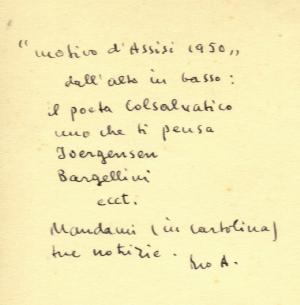 "motivo d'Assisi 1950„
dall'alto in basso:
il poeta Colsalvatico
uno che ti pensa
Joergensen
Bargellini
ecct.
Mandami (in cartolina)
tue notizie. tuo A.